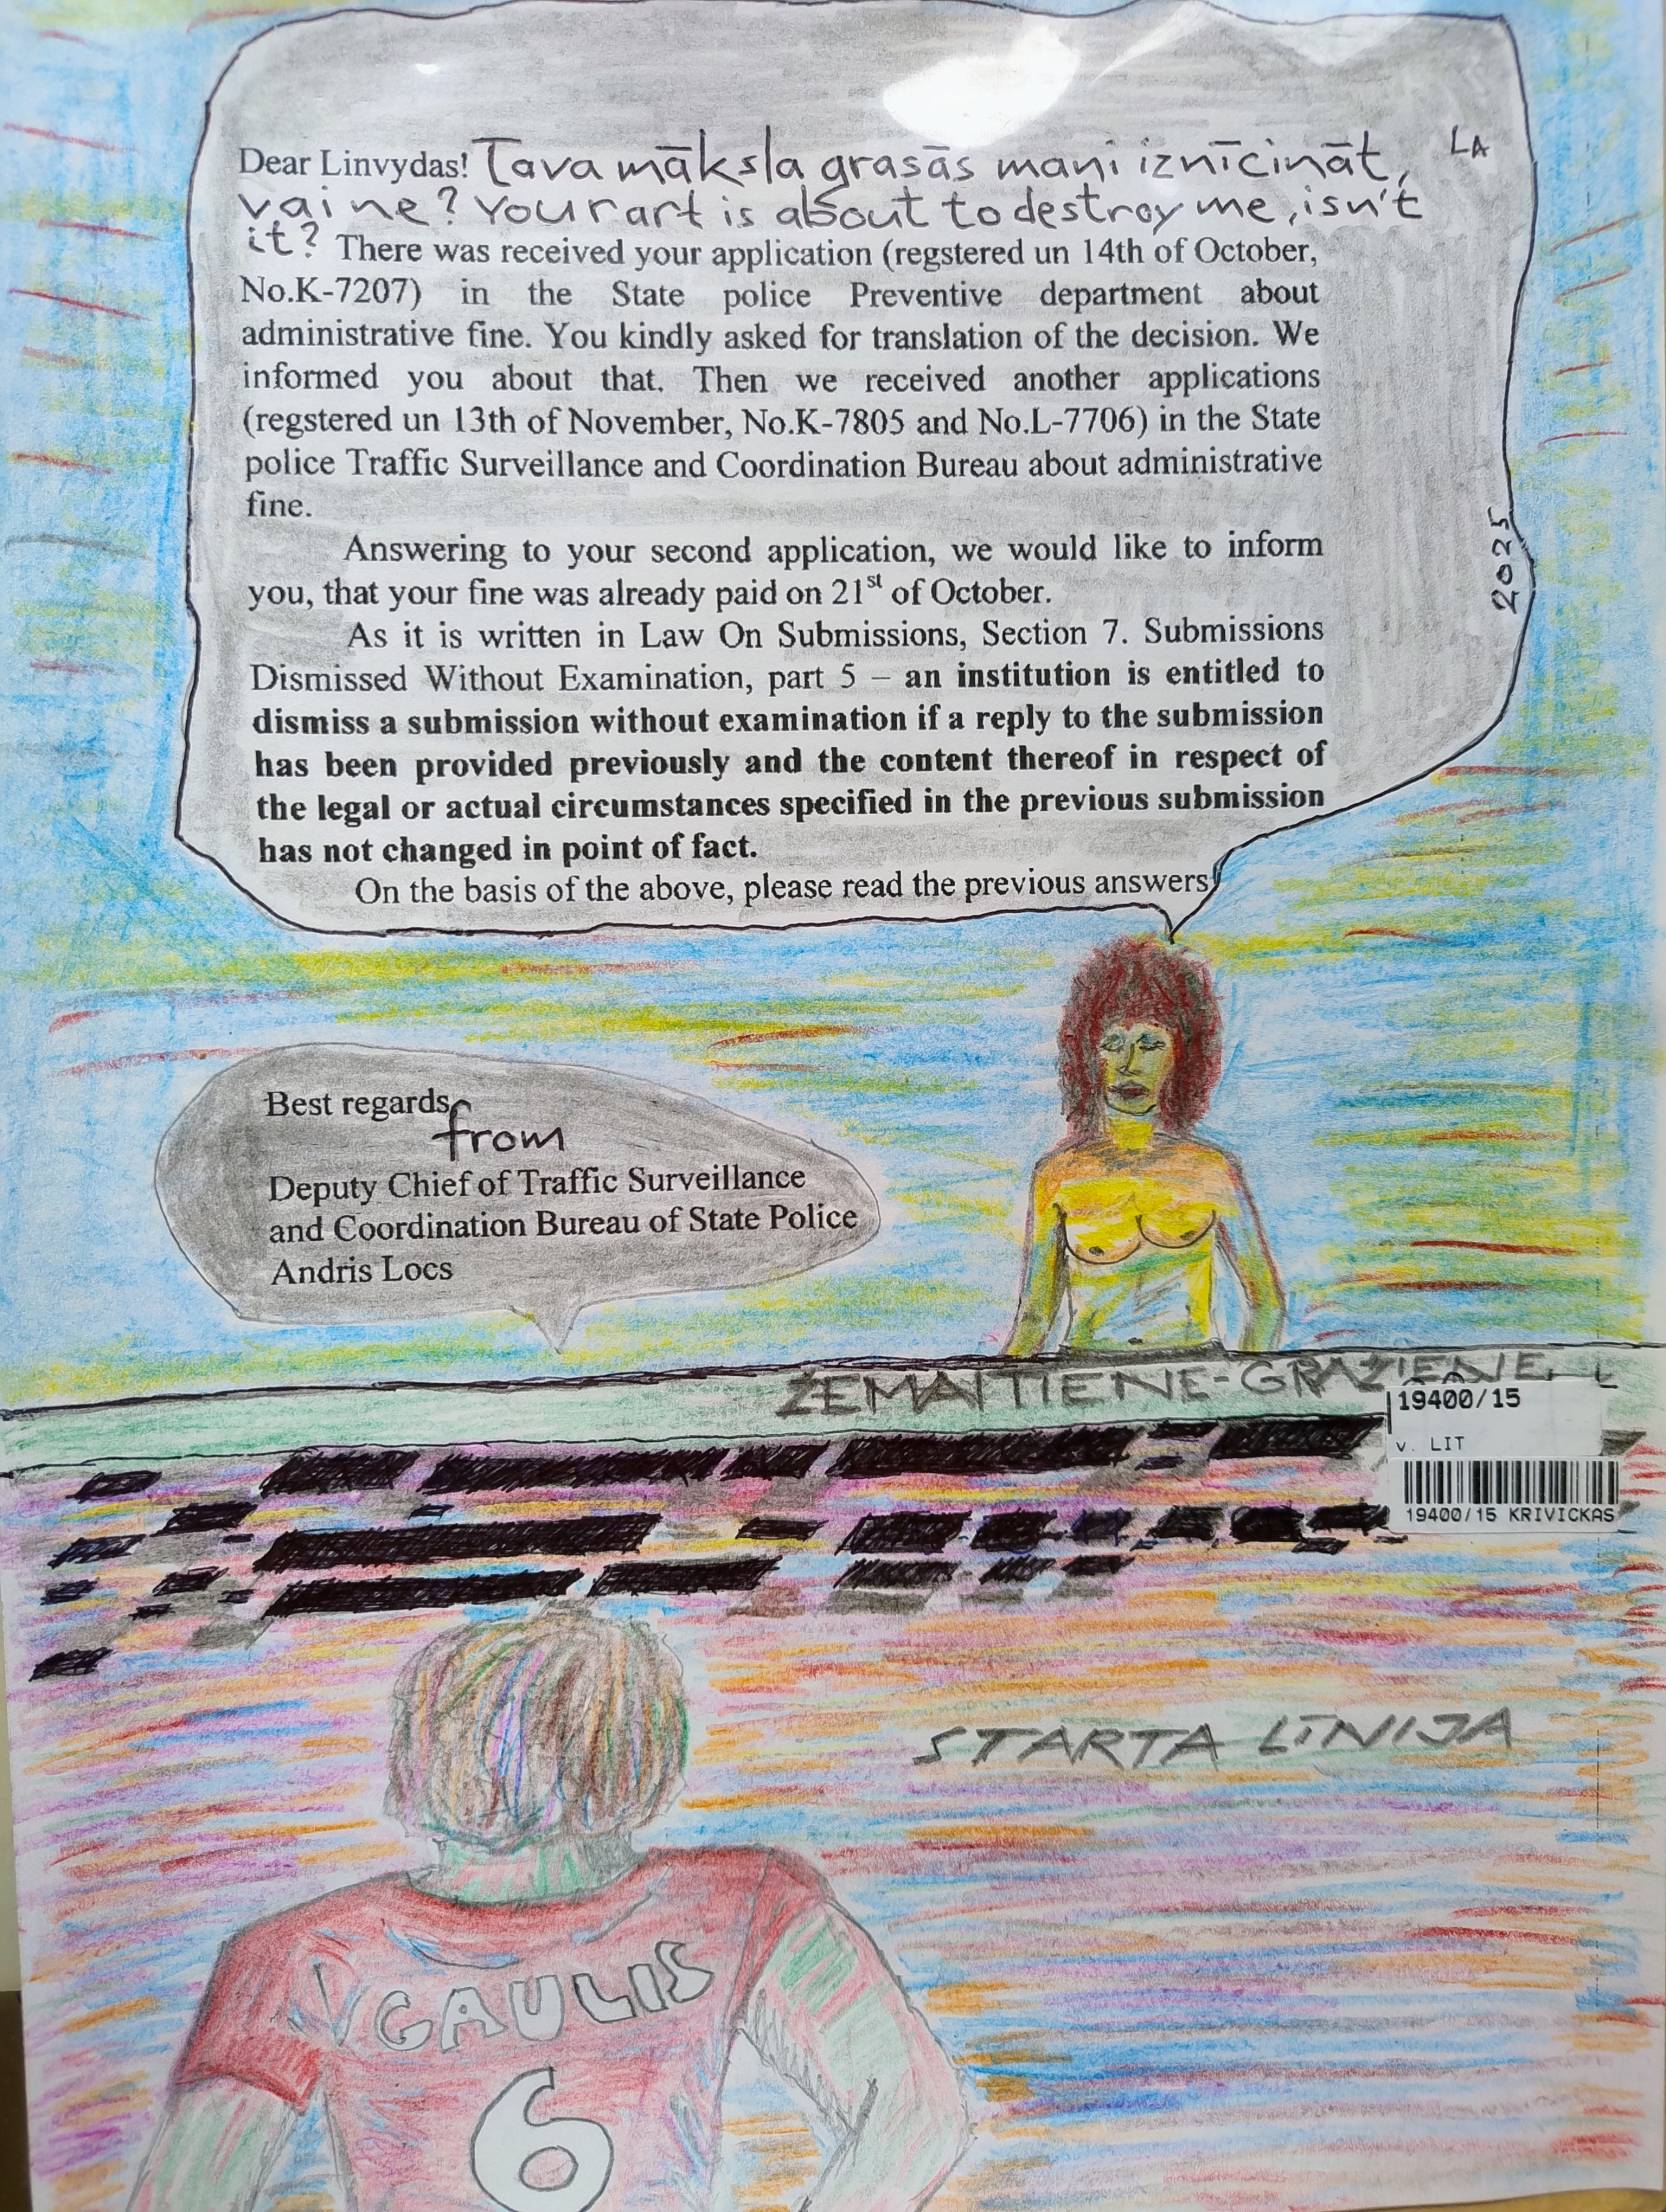 Dear Linvydas! Tava māksla grasās mani iznīcināt,
vai ne? Your art is about to destroy me, isn't
it? There was received your application (regstered un 14th of October,
No.K-7207) in the State police Preventive department about
administrative fine. You kindly asked for translation of the decision. We
informed you about that. Then we received another applications
(regstered un 13th of November, No.K-7805 and No.L-7706) in the State
police Traffic Surveillance and Coordination Bureau about administrative
fine.
Answering to your second application, we would like to inform
you, that your fine was already paid on 21st of October.
As it is written in Law On Submissions, Section 7. Submissions
Dismissed Without Examination, part 5 – an institution is entitled to
dismiss a submission without examination if a reply to the submission
has been provided previously and the content thereof in respect of
the legal or actual circumstances specified in the previous submission
has not changed in point of fact.
On the basis of the above, please read the previous answers!
LA
2025
Best regards,
from
Deputy Chief of Traffic Surveillance
and Coordination Bureau of State Police
Andris Locs
ŽEMAITIENE-GRAŽIENE
19400/15
v. LIT
19400/15 KRIVICKAS
STARTA LĪNIJA
VGAULIS
6